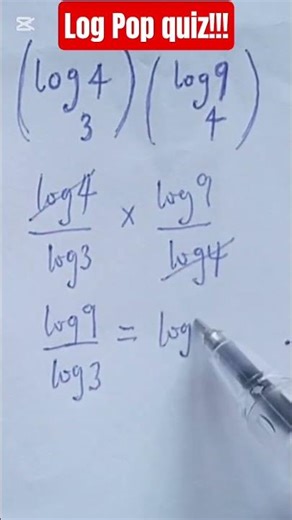 Log Pop quiz!!!
(log₃4)(log₄9)
log4/log3 × log9/log4
log9/log3 = log